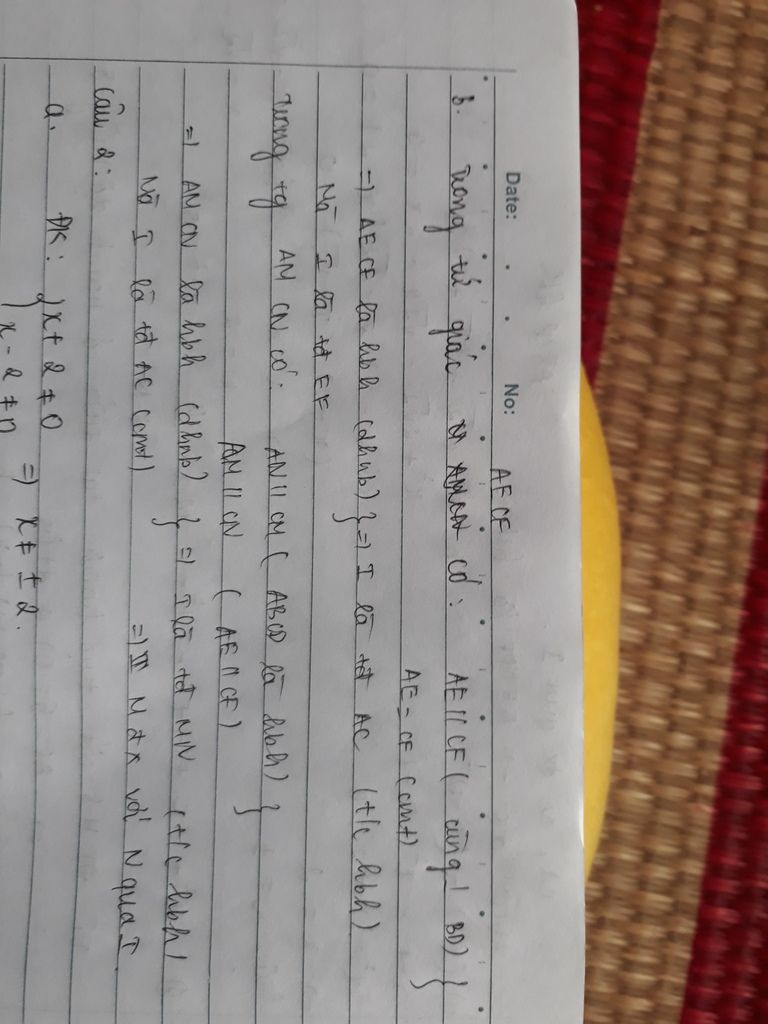 Date: No:
AECF
b. Trong tứ giác có: AE // CF ( cùng ⊥ BD) }
AE = CF (cmt)
=) AECF là hbh (dhnb) } =) I là tđ AC (t/c hbh)
Mà I là tđ EF
Trong tg AMCN có: AN // CM ( ABCD là hbh) }
AM // CN ( AE // CF)
=) AMCN là hbh (dhnb) } =) I là tđ MN (t/c hbh)
Mà I là tđ AC (cmt) =) M đx với N qua I
Câu 2:
a. ĐK: { x + 2 ≠ 0
x - 2 ≠ 0 =) x ≠ ± 2.